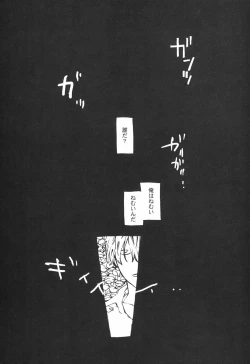 ガンッ
ガッ
ガッ!
誰だ?
俺はねむい
ねむいんだ
ギィィィ